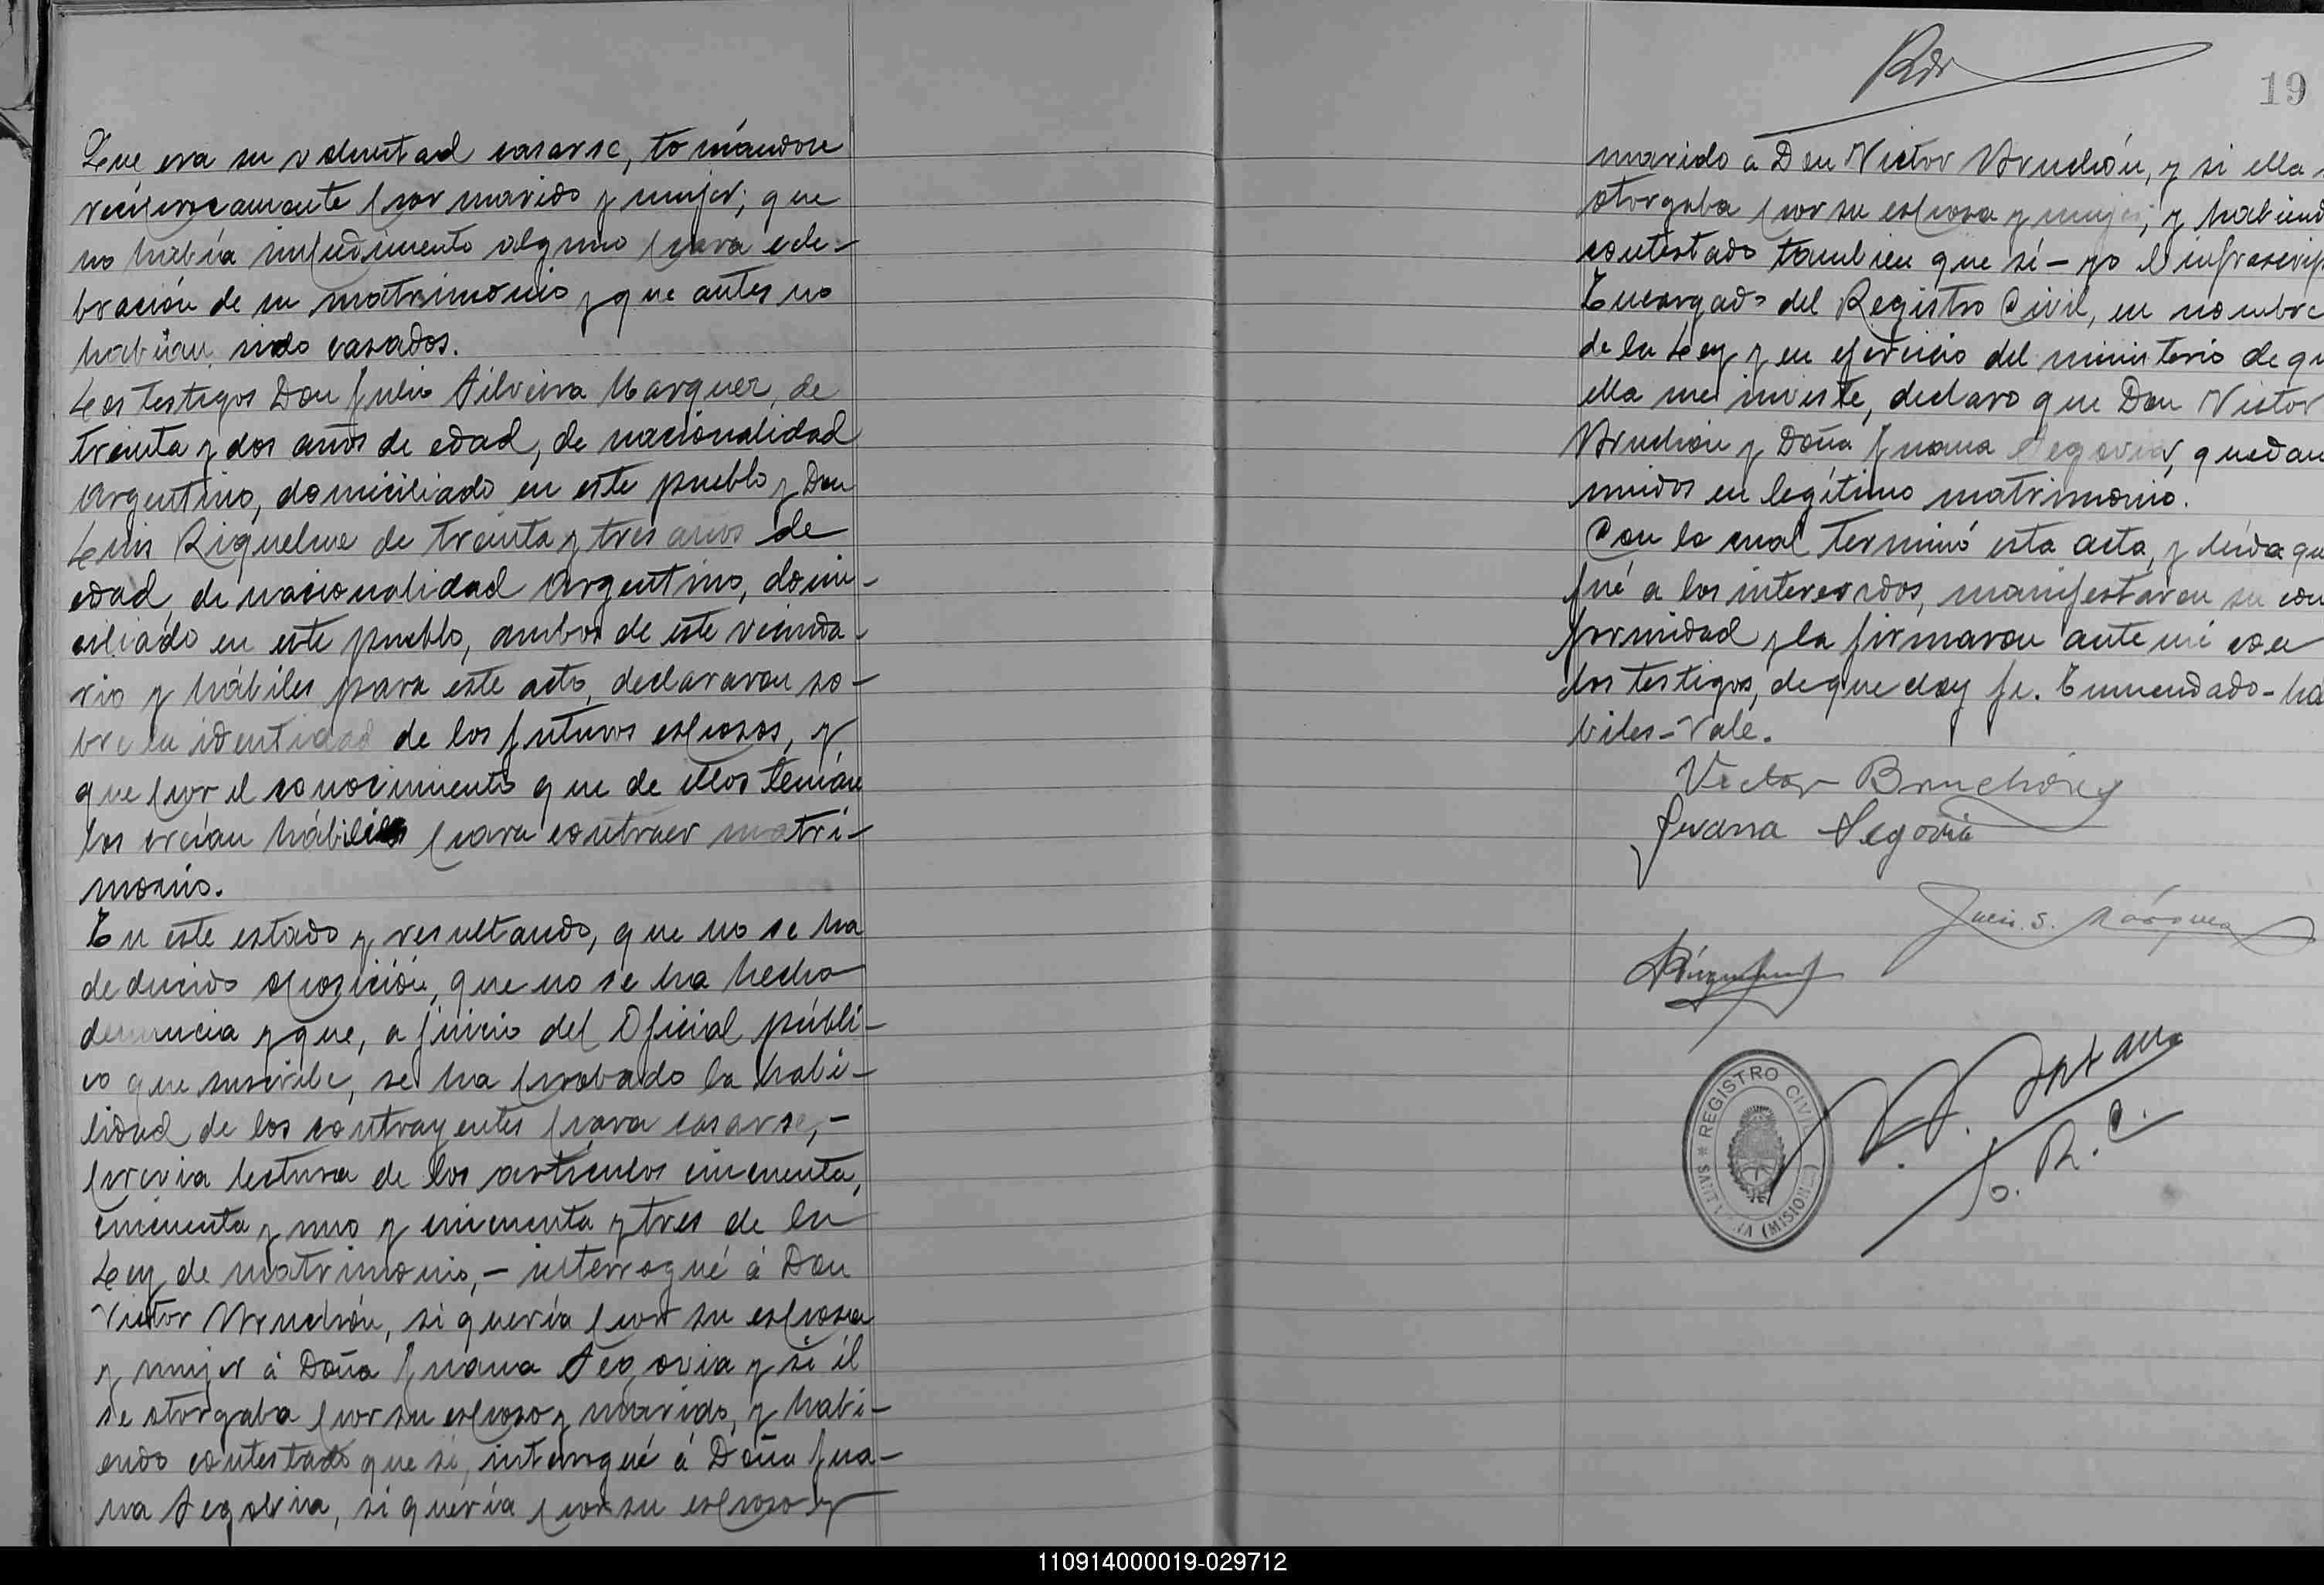 Que era su voluntad casarse, tomándose
recíprocamente por marido y mujer; que
no había impedimento alguno para cele-
bración de su matrimonio y que antes no
habían sido casados.
Los testigos Don Julio Silveira Marquez, de
treinta y dos años de edad, de nacionalidad
Argentino, domiciliado en este pueblo y Don
Luis Riquelme de treinta y tres años de
edad, de nacionalidad Argentino, domi-
ciliado en este pueblo, ambos de este vecinda-
rio y hábiles para este acto, declararon so-
bre la identidad de los futuros esposos, y
que por el conocimiento que de ellos tenían
los creían hábiles para contraer matri-
monio.
En este estado y resultando, que no se ha
deducido oposición, que no se ha hecho
denuncia y que, a juicio del Oficial públi-
co que suscribe, se ha probado la habi-
lidad de los contrayentes para casarse,-
previa lectura de los artículos cincuenta,
cincuenta y uno y cincuenta y tres de la
Ley de matrimonio,- interrogué á Don
Victor Bruchón, si quería por su esposa
y mujer á Doña Juana Segovia y si él
se otorgaba por su esposo y marido, y habi-
endo contestado que sí, interrogué á Doña Jua-
na Segovia, si quería por su esposo y
19
marido a Don Victor Bruchón, y si ella
otorgaba por su esposa y mujer; y habiend
contestado tambien que sí - yo el infrascrip
Encargado del Registro Civil, en nombre
de la Ley y en ejercicio del ministerio de qu
ella me inviste, declaro que Don Victor
Bruchón y Doña Juana Segovia, quedan
unidos en legítimo matrimonio.
Con lo cual terminó esta acta, y leída que
fué a los interesados, manifestaron su con
formidad y la firmaron ante mi con
los testigos, de que doy fe. Enmendado-há
biles-Vale.
Victor Bruchón
Juana Segovia
Julio S. Márquez
REGISTRO CIVIL
SANTA ANA (MISIONES)
R. C.
110914000019-029712